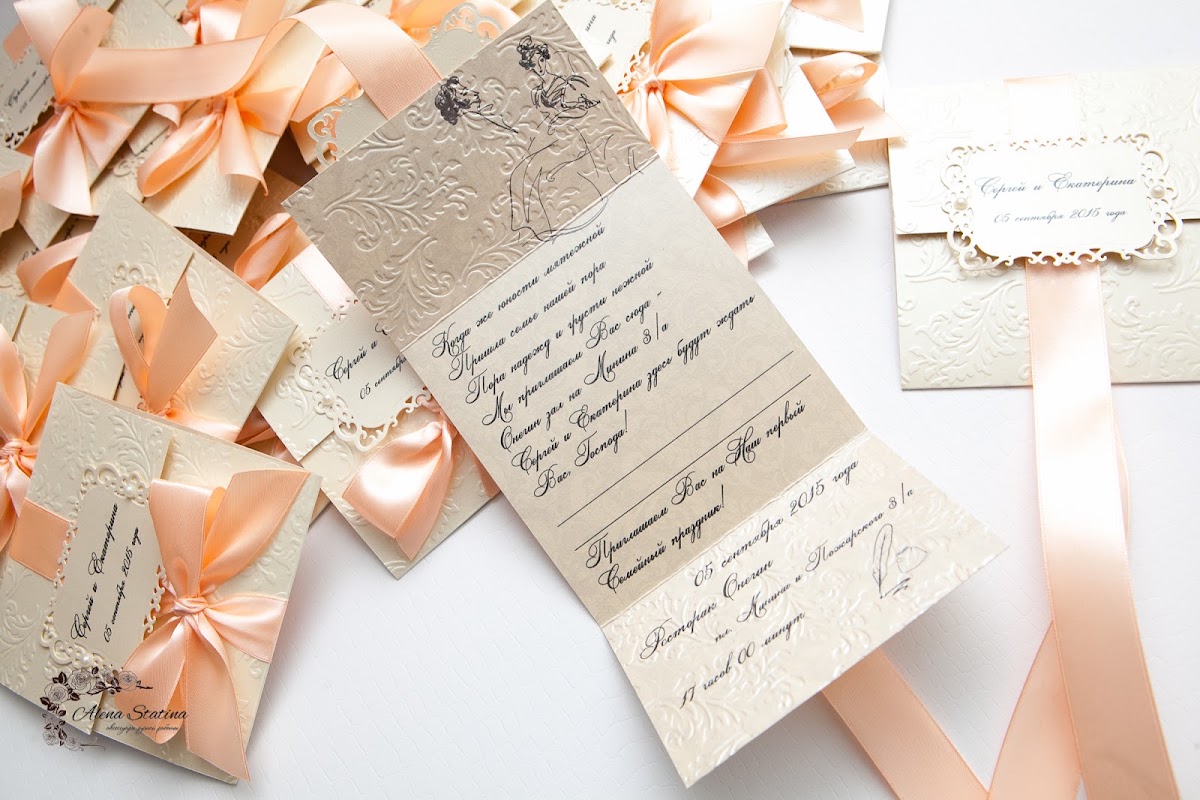 Когда же юности мятежной
Пришла семье нашей пора
Пора надежд и грусти нежной
Мы приглашаем Вас сюда -
Онегин зал на Минина 3/а
Сергей и Екатерина здесь будут ждать
Вас, Господа!
Приглашаем Вас на Наш первый
Семейный праздник!
05 сентября 2015 года
Ресторан Онегин
пл. Минина и Пожарского 3/а
17 часов 00 минут
Сергей и Екатерина
05 сентября 2015 года
Сергей и
05 сентября
Сергей и Екатерина
05 сентября 2015 года
Alena Statina
аксессуары ручной работы